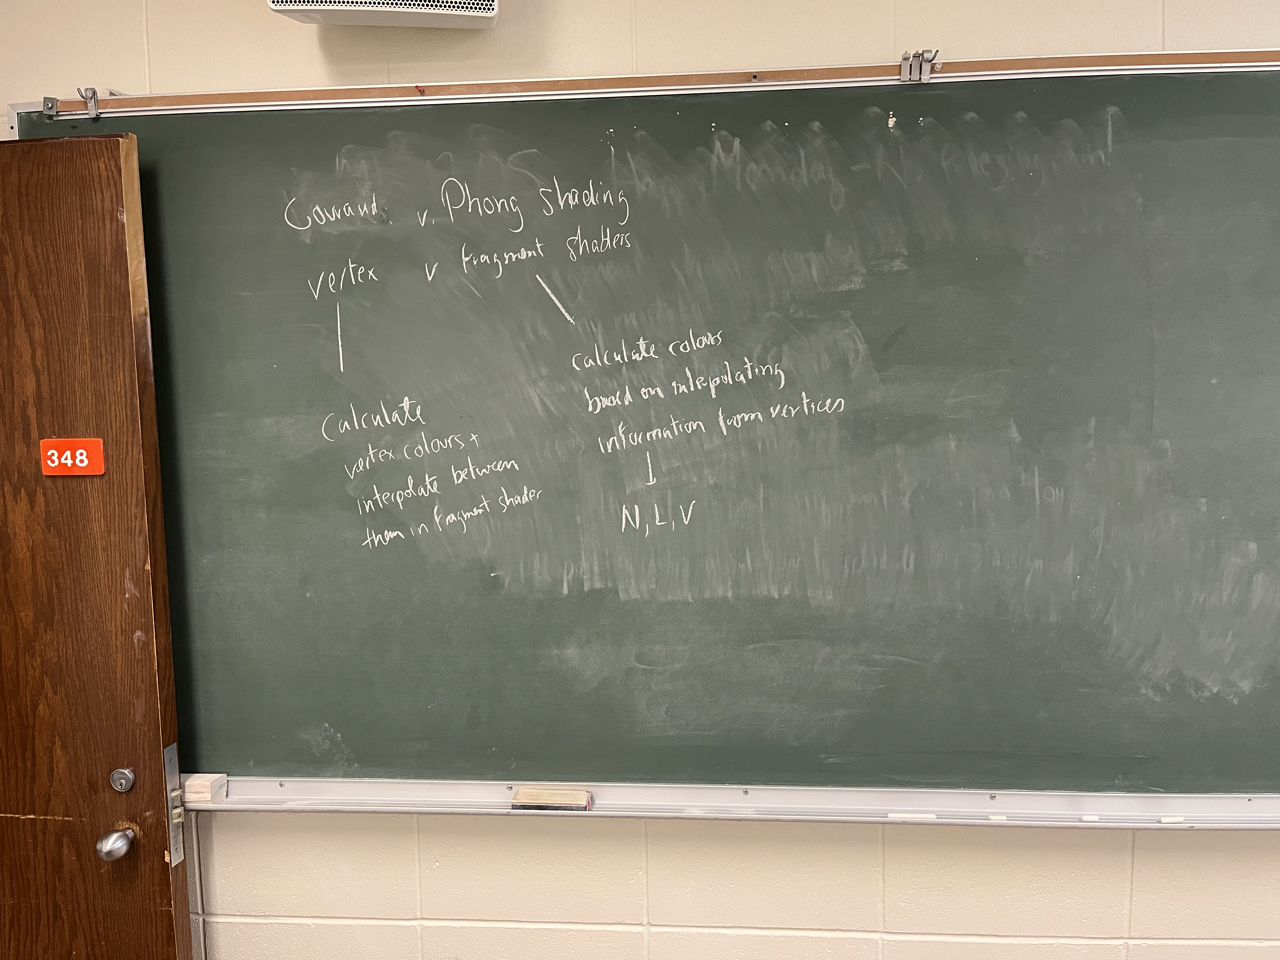 Gouraud v. Phong shading
vertex v fragment shaders
Calculate
vertex colours +
interpolate between
them in fragment shader
calculate colours
based on interpolating
information from vertices
N, L, V
348